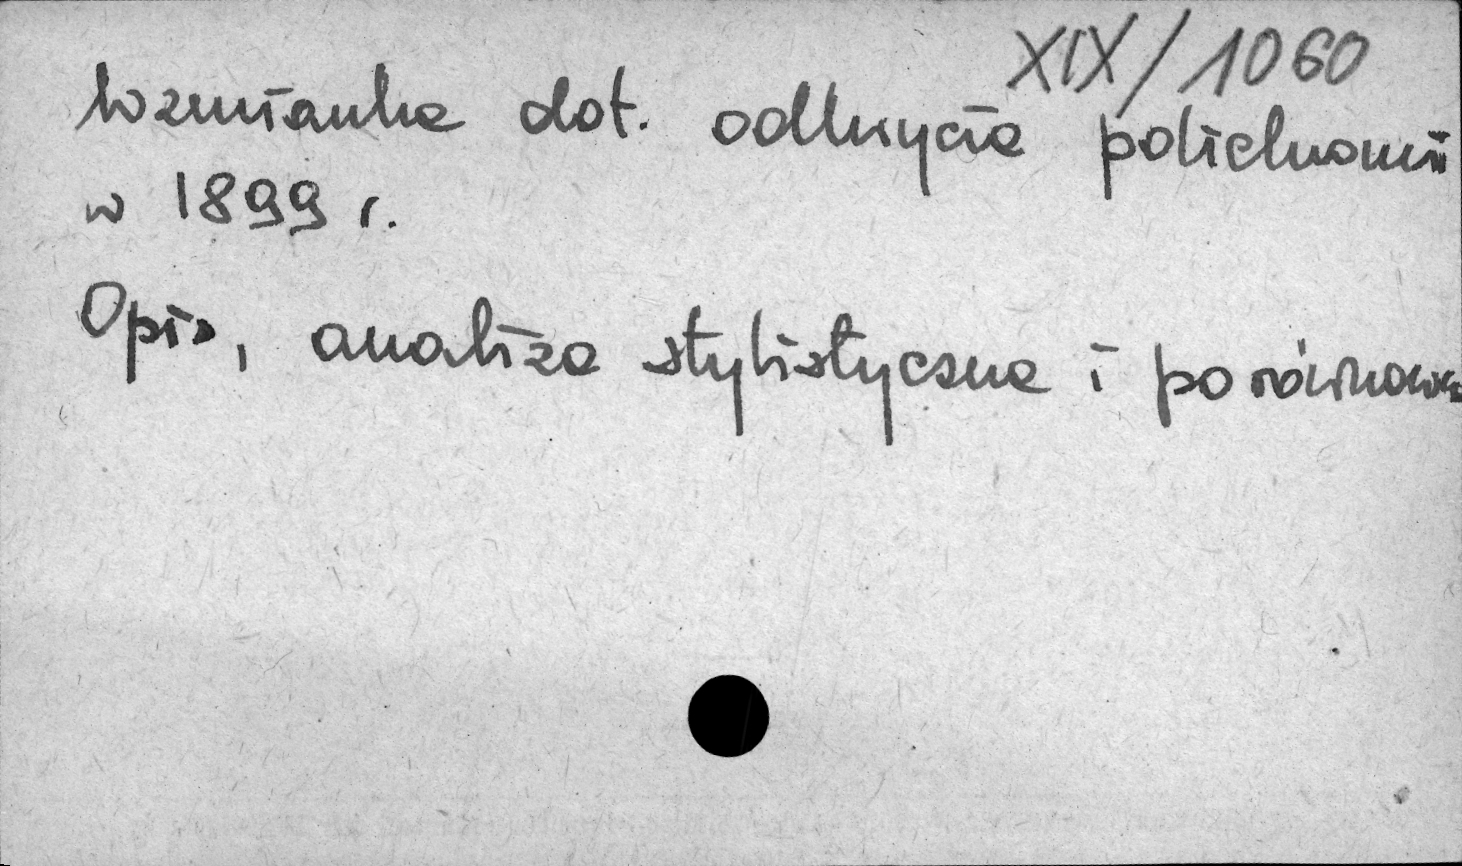 XIX/1060
Wzmianka dot. odkrycia polichromii
w 1899 r.
Opis, analiza stylistyczna i porównawcza